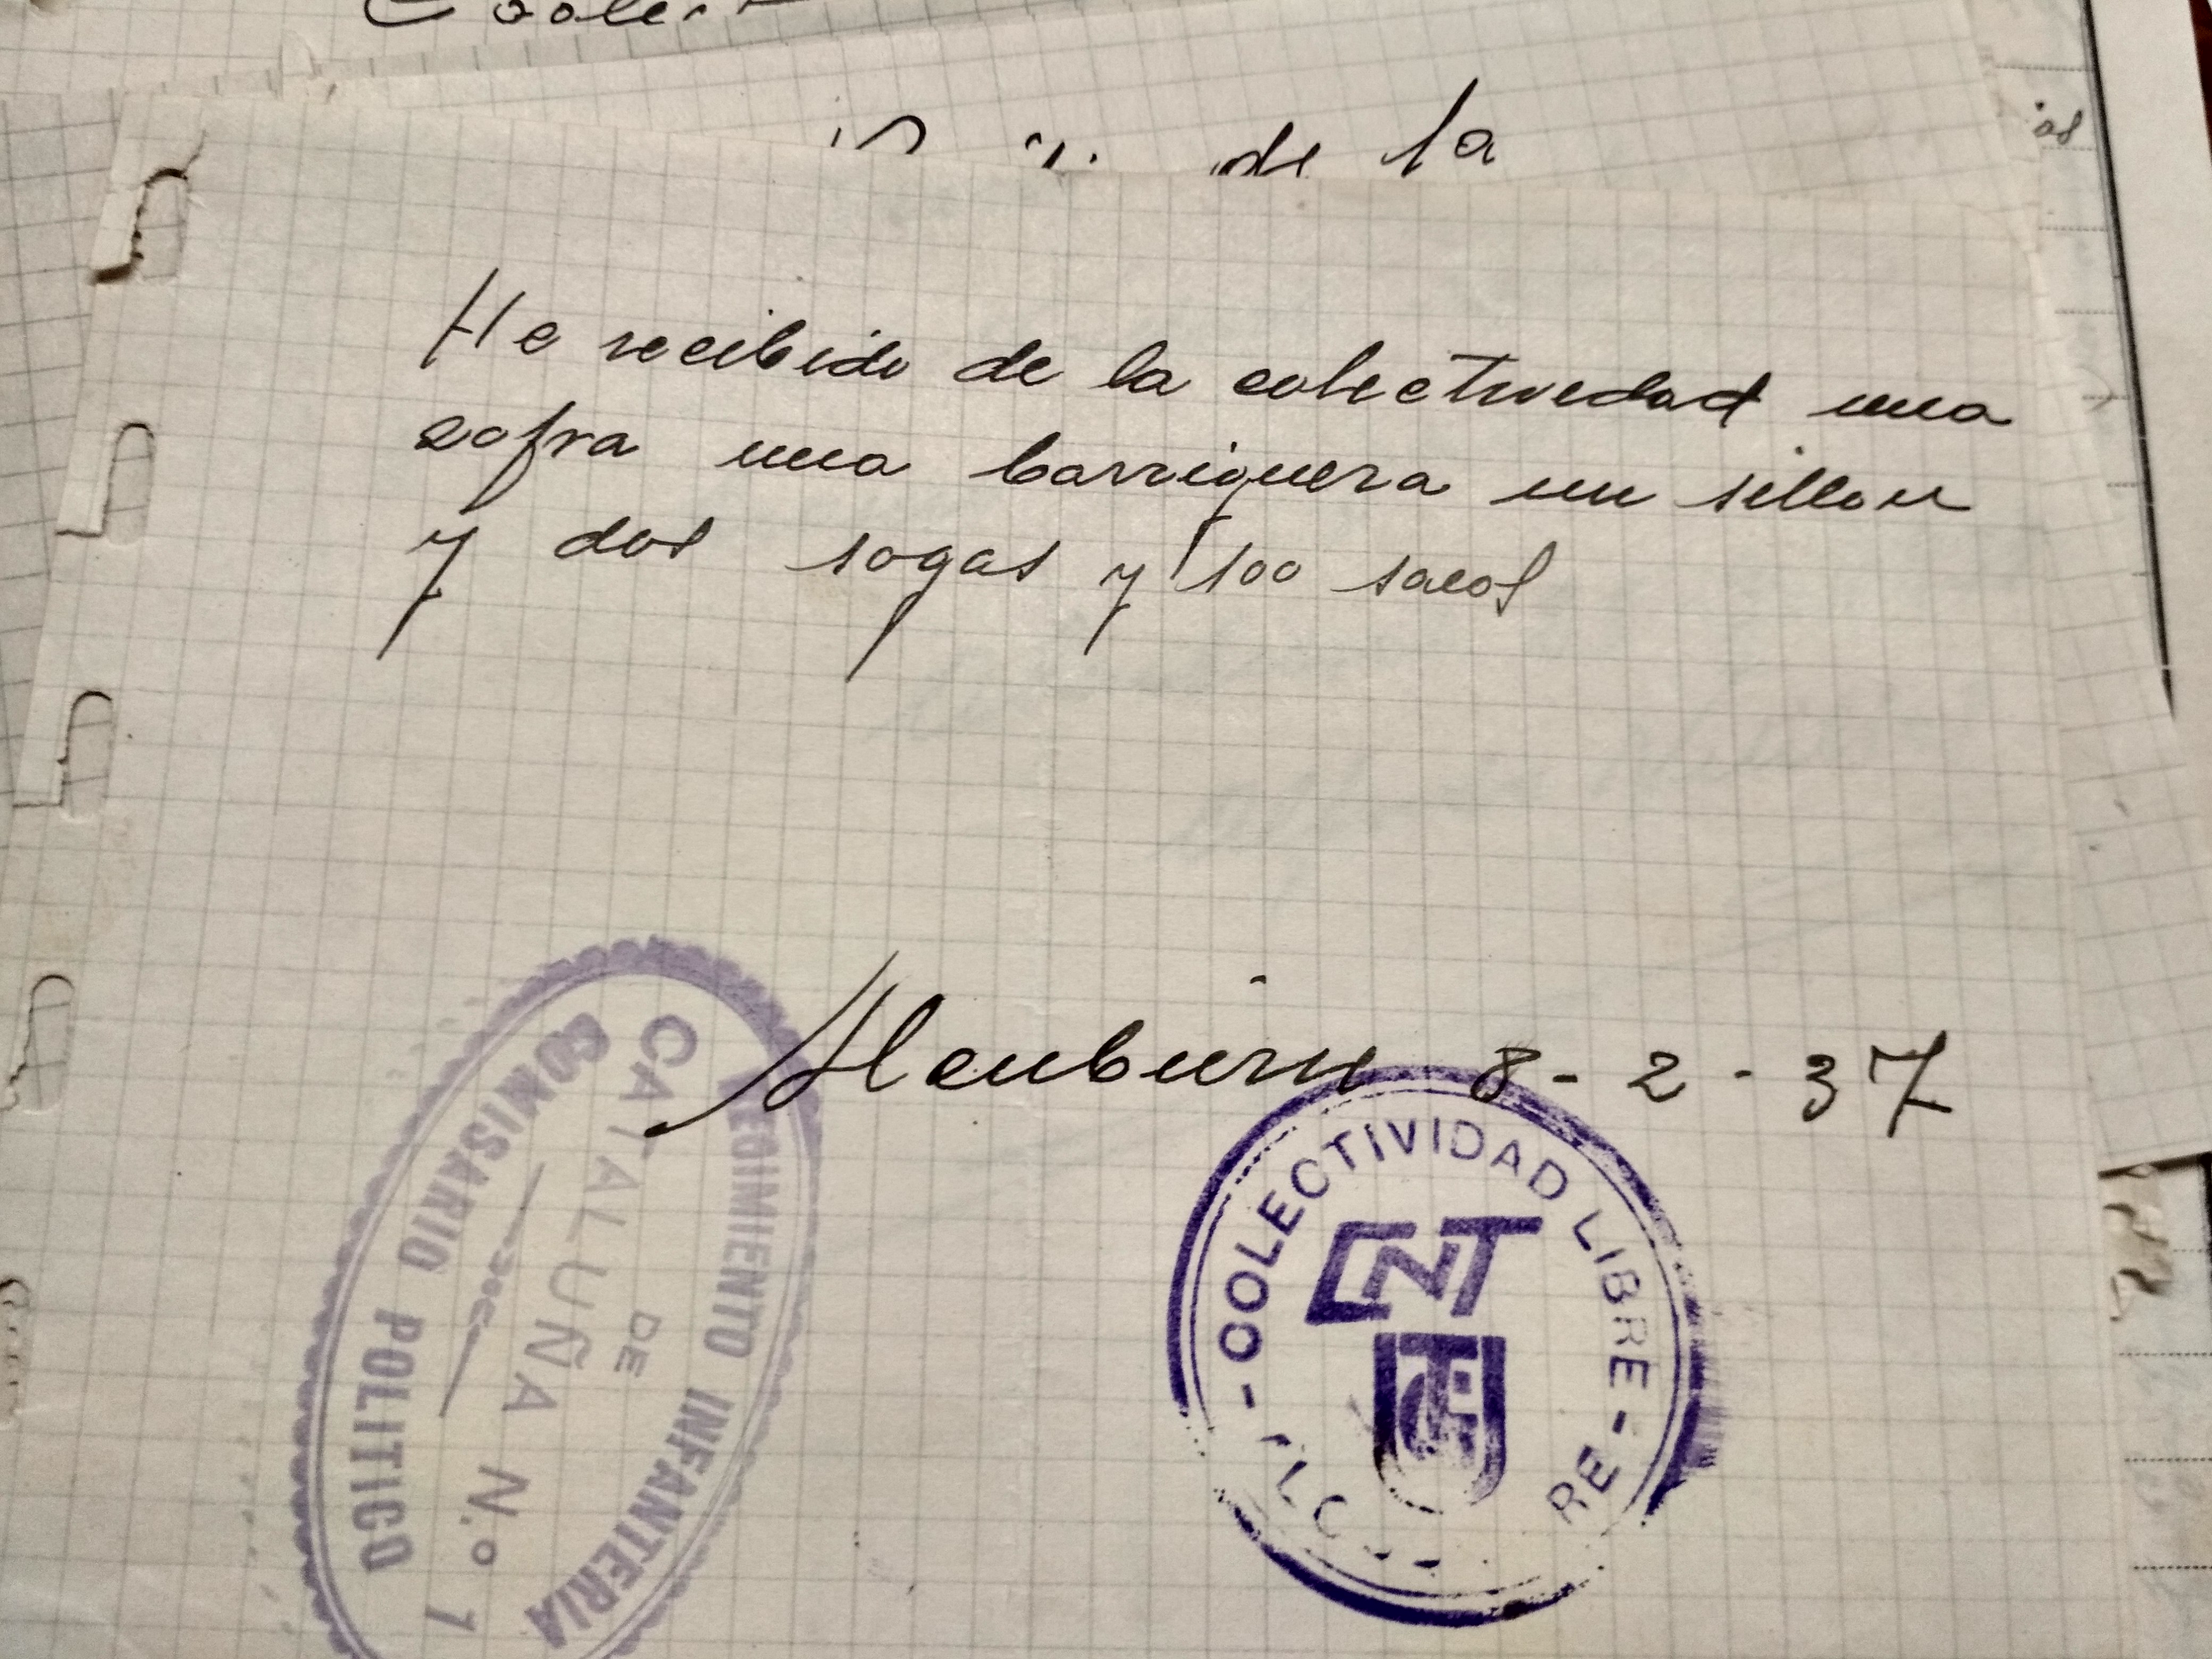 de la
He recibido de la colectividad una
zofra una barriguera un sillon
y dos sogas y 100 sacos
8 - 2 - 37
REGIMIENTO INFANTERIA
DE
CATALUÑA N.º 1
COMISARIO POLITICO
- COLECTIVIDAD LIBRE -
CNT